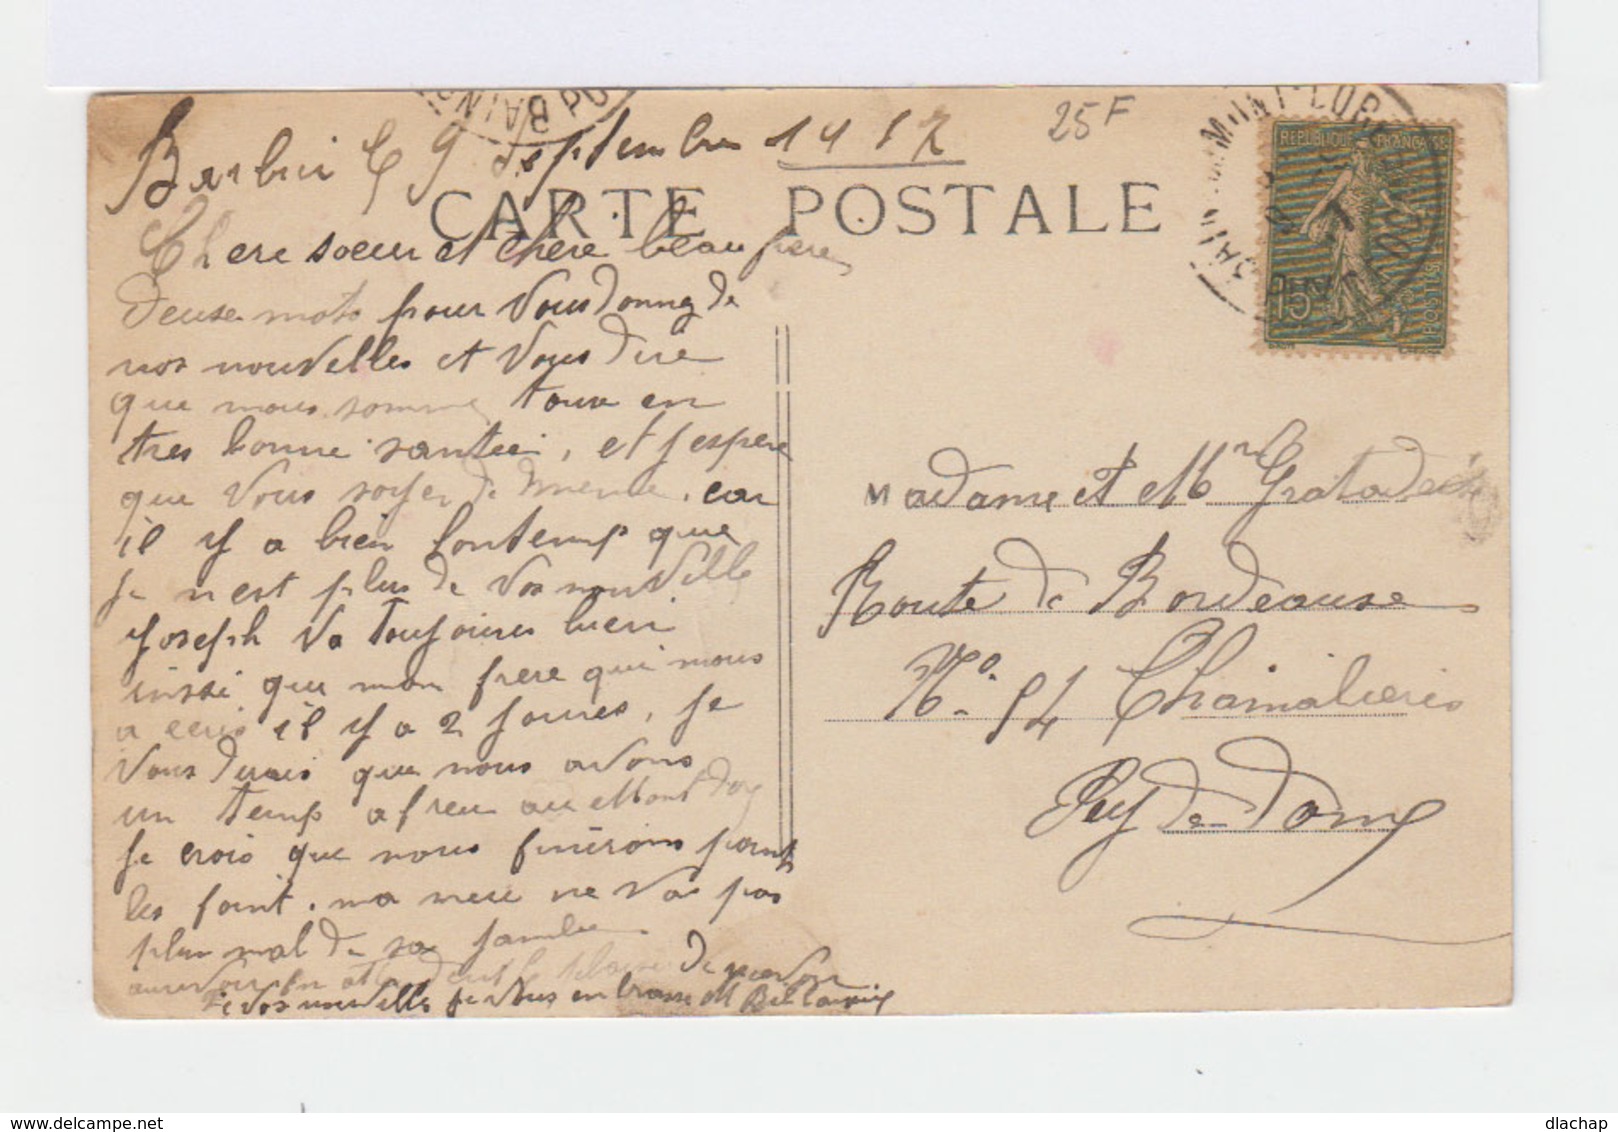 Barbier le 9 septembre 1917
25F
CARTE POSTALE
REPUBLIQUE FRANÇAISE
15
POSTES
BAINS
Chere soeur et chere beau frere
deuse mots pour vous donnez de
nos nouvelles et vous dire
que nous somme tous en
tres bonne santée, et jespere
que vous soyer de meme, car
il y a bien lontemp que
je n'est plus de vos nouvelle
joseph va toujoures bien
inssi que mon frere qui nous
a ecris il y a 2 joures, je
vous dirais que nous avons
un temp afreu au Mont dore
je crois que nous finirons pour
les foint. ma mere ne va pas
plus mal de sa jambe
aurevoir en attendent le plaisir de recevoir
de vos nouvelle je vous embrasse M
Madame et Mr
Route de Bordeause
No. 54 Chamalieres
Puy de Dome
delcampe.net
dlachap